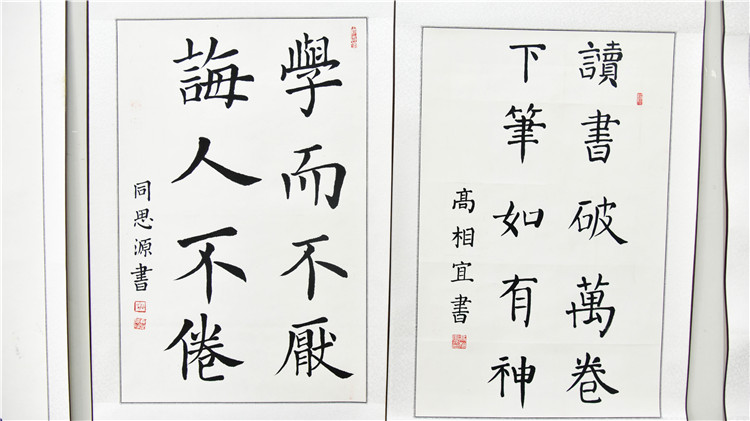 學而不厭
誨人不倦
同思源書
讀書破萬卷
下筆如有神
高相宜書